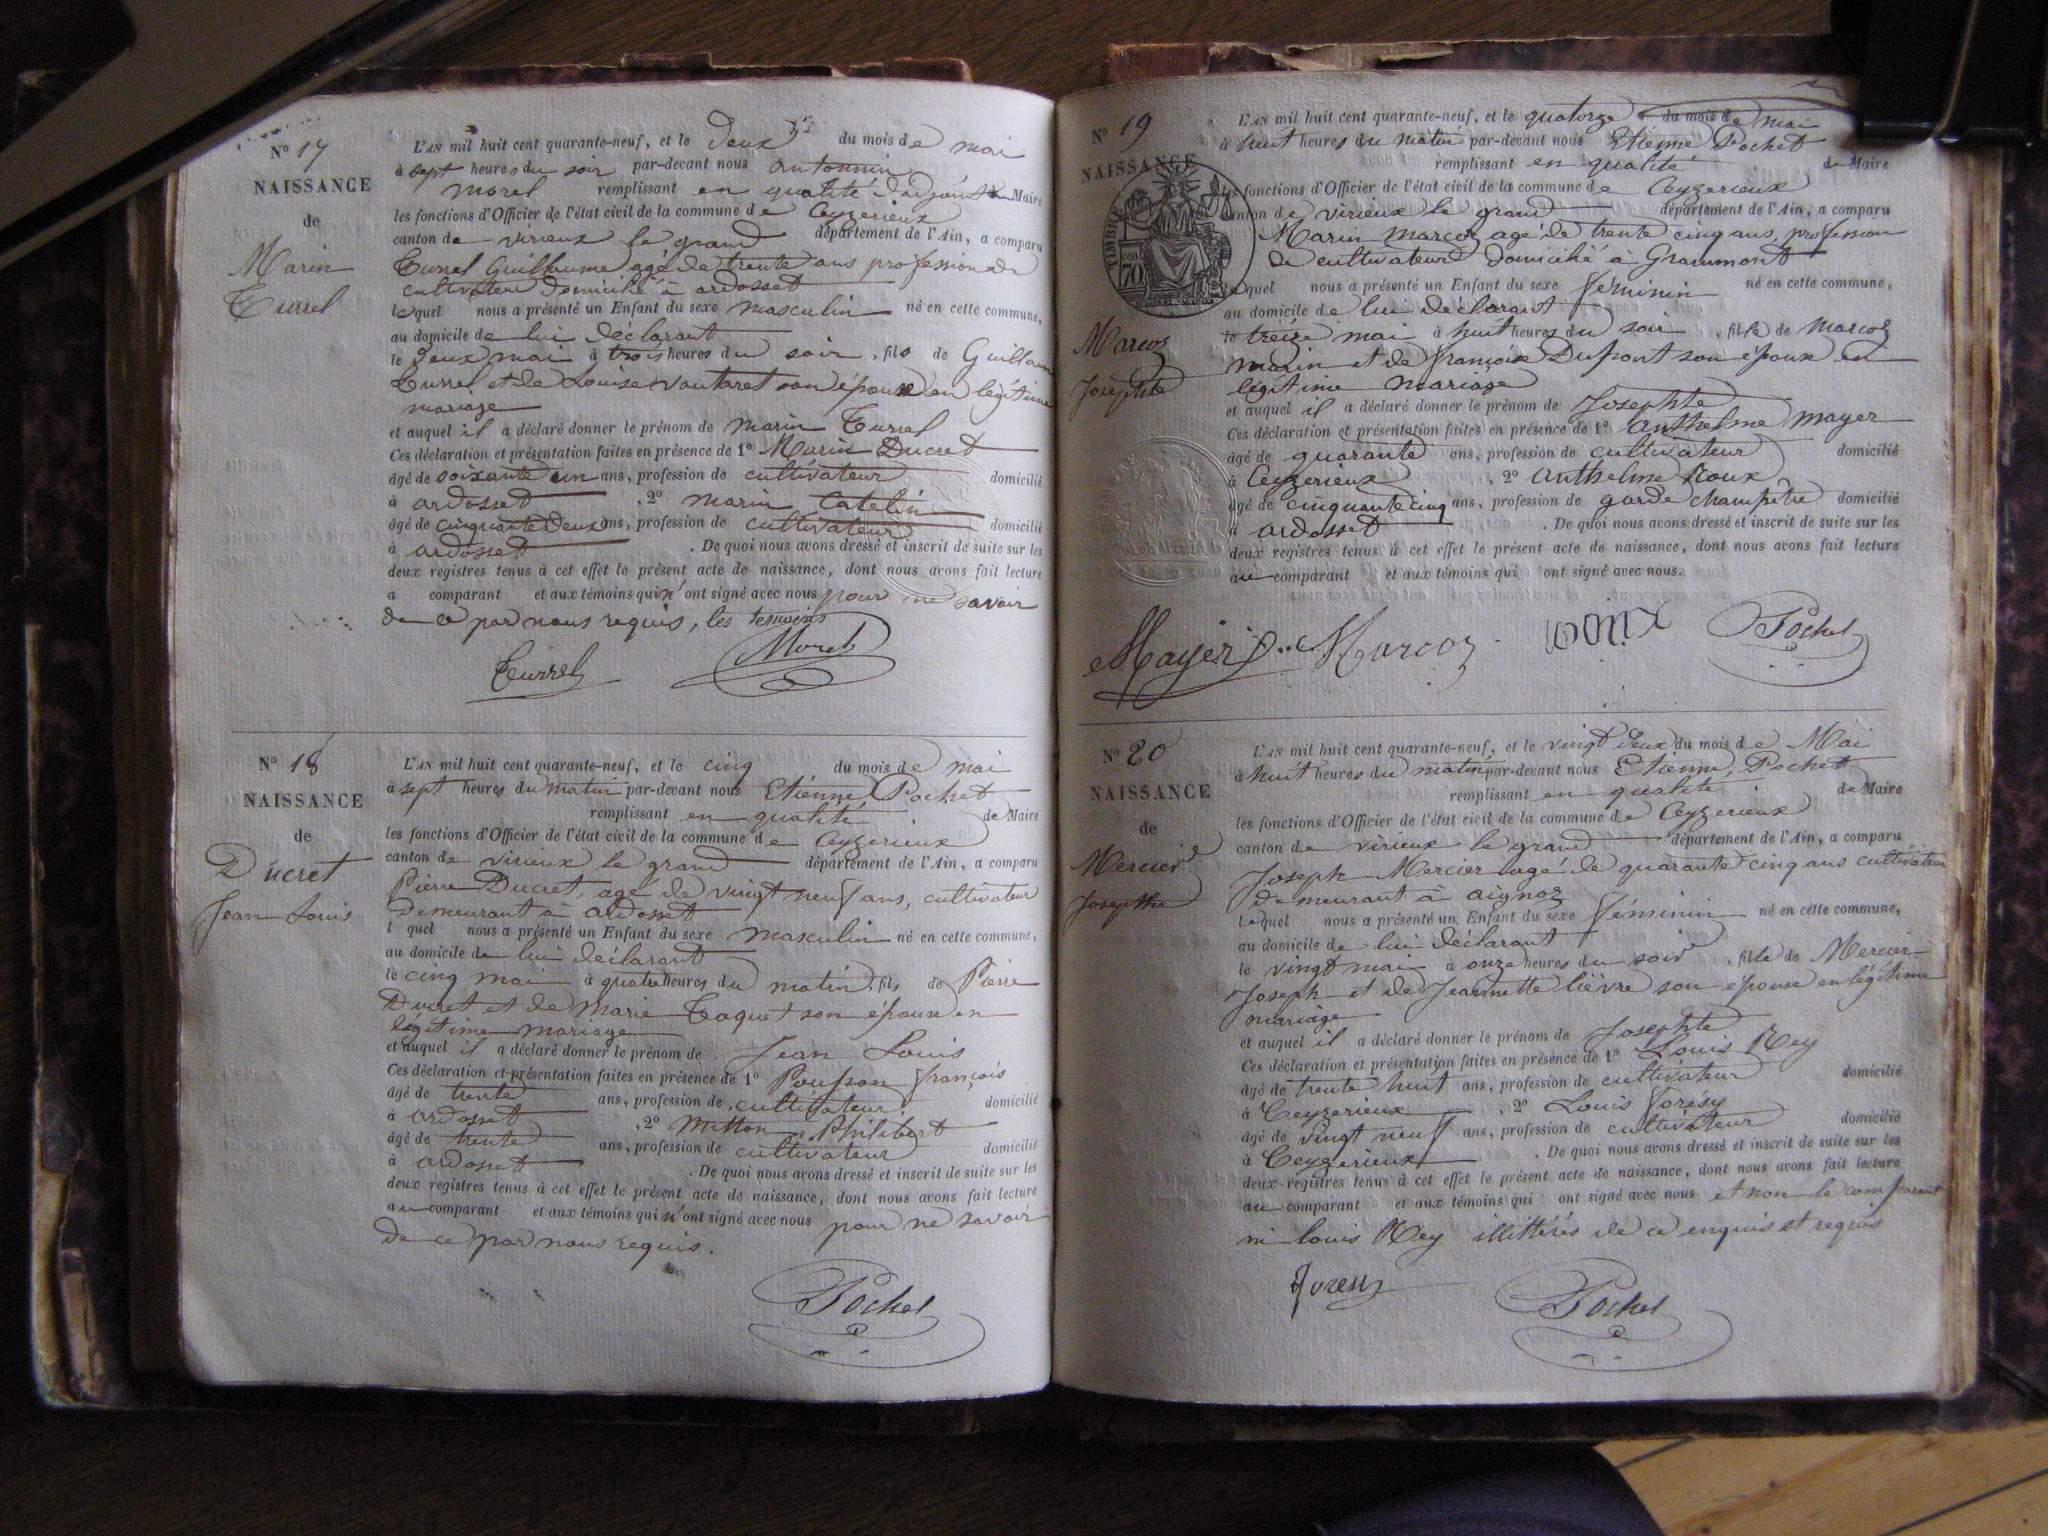 N° 17
NAISSANCE
de
Marin
Turrel
L'AN mil huit cent quarante-neuf, et le deux du mois de mai
à sept heures du soir par-devant nous antonnin
morel remplissant en qualité d'adjoint de Maire
les fonctions d'Officier de l'état civil de la commune de Ceyzerieux
canton de virieux le grand département de l'Ain, a comparu
Turrel Guillaume agé de trente ans profession de
cultivateur domicilié à ardosset
lequel nous a présenté un Enfant du sexe masculin né en cette commune,
au domicile de lui déclarant
le deux mai à trois heures du soir, fils de Guillaume
Turrel et de Louise vautaret son épouse en légitime
mariage
et auquel il a déclaré donner le prénom de marin Turrel
Ces déclaration et présentation faites en présence de 1° Marin Ducret
âgé de soixante un ans, profession de cultivateur domicilié
à ardosset , 2° marin Catelin
âgé de cinquante deux ans, profession de cultivateur domicilié
à ardosset . De quoi nous avons dressé et inscrit de suite sur les
deux registres tenus à cet effet le présent acte de naissance, dont nous avons fait lecture
a comparant et aux témoins qui n'ont signé avec nous pour ne savoir
de ce par nous requis, les temoins
Turrel Morel
N° 18
NAISSANCE
de
Ducret
Jean Louis
L'AN mil huit cent quarante-neuf, et le cinq du mois de mai
à sept heures du matin par-devant nous Etienne Pochet
remplissant en qualité de Maire
les fonctions d'Officier de l'état civil de la commune de Ceyzerieux
canton de virieux le grand département de l'Ain, a comparu
Pierre Ducret, agé de vingt neuf ans, cultivateur
demeurant à ardosset
l quel nous a présenté un Enfant du sexe masculin né en cette commune,
au domicile de lui déclarant
le cinq mai à quatre heures du matin, fils de Pierre
Ducret et de Marie Taquet son épouse en
légitime mariage
et auquel il a déclaré donner le prénom de Jean Louis
Ces déclaration et présentation faites en présence de 1° françois
âgé de trente ans, profession de cultivateur domicilié
à ardosset , 2° Mitton Philibert
âgé de trente ans, profession de cultivateur domicilié
à ardosset . De quoi nous avons dressé et inscrit de suite sur les
deux registres tenus à cet effet le présent acte de naissance, dont nous avons fait lecture
au comparant et aux témoins qui n'ont signé avec nous pour ne savoir
de ce par nous requis.
Pochet
N° 19
NAISSANCE
TIMBRE
70
Marcoz
Josephte
L'AN mil huit cent quarante-neuf, et le quatorze du mois de mai
à huit heures du matin par-devant nous Etienne Pochet
remplissant en qualité de Maire
les fonctions d'Officier de l'état civil de la commune de Ceyzerieux
canton de virieux le grand département de l'Ain, a comparu
Marin marcoz agé de trente cinq ans, profession
de cultivateur domicilié à Grammont
lequel nous a présenté un Enfant du sexe féminin né en cette commune,
au domicile de lui déclarant
le treize mai à huit heures du soir, fille de Marcoz
marin et de françoise Dupont son épouse en
légitime mariage
et auquel il a déclaré donner le prénom de Josephte
Ces déclaration et présentation faites en présence de 1° anthelme mayer
âgé de quarante ans, profession de cultivateur domicilié
à Ceyzerieux , 2° anthelme Roux
âgé de cinquante cinq ans, profession de garde champêtre domicilié
à ardosset . De quoi nous avons dressé et inscrit de suite sur les
deux registres tenus à cet effet le présent acte de naissance, dont nous avons fait lecture
au comparant et aux témoins qui ont signé avec nous.
Mayer Marcoz roux Pochet
N° 20
NAISSANCE
de
Mercier
Josephte
L'AN mil huit cent quarante-neuf, et le vingt deux du mois de Mai
à huit heures du matin par-devant nous Etienne Pochet
remplissant en qualité de Maire
les fonctions d'Officier de l'état civil de la commune de Ceyzerieux
canton de virieux le grand département de l'Ain, a comparu
Joseph Mercier agé de quarante cinq ans cultivateur
demeurant à aignoz
lequel nous a présenté un Enfant du sexe féminin né en cette commune,
au domicile de lui déclarant
le vingt mai à onze heures du soir, fille de Mercier
Joseph et de Jeannette lièvre son épouse en légitime
mariage
et auquel il a déclaré donner le prénom de Josephte
Ces déclaration et présentation faites en présence de 1° Louis Rey
âgé de trente huit ans, profession de cultivateur domicilié
à Ceyzerieux , 2° Louis forésy
âgé de vingt neuf ans, profession de cultivateur domicilié
à Ceyzerieux . De quoi nous avons dressé et inscrit de suite sur les
deux registres tenus à cet effet le présent acte de naissance, dont nous avons fait lecture
au comparant et aux témoins qui ont signé avec nous et non le comparant
ni louis Rey illittérés de ce enquis et requis
Pochet